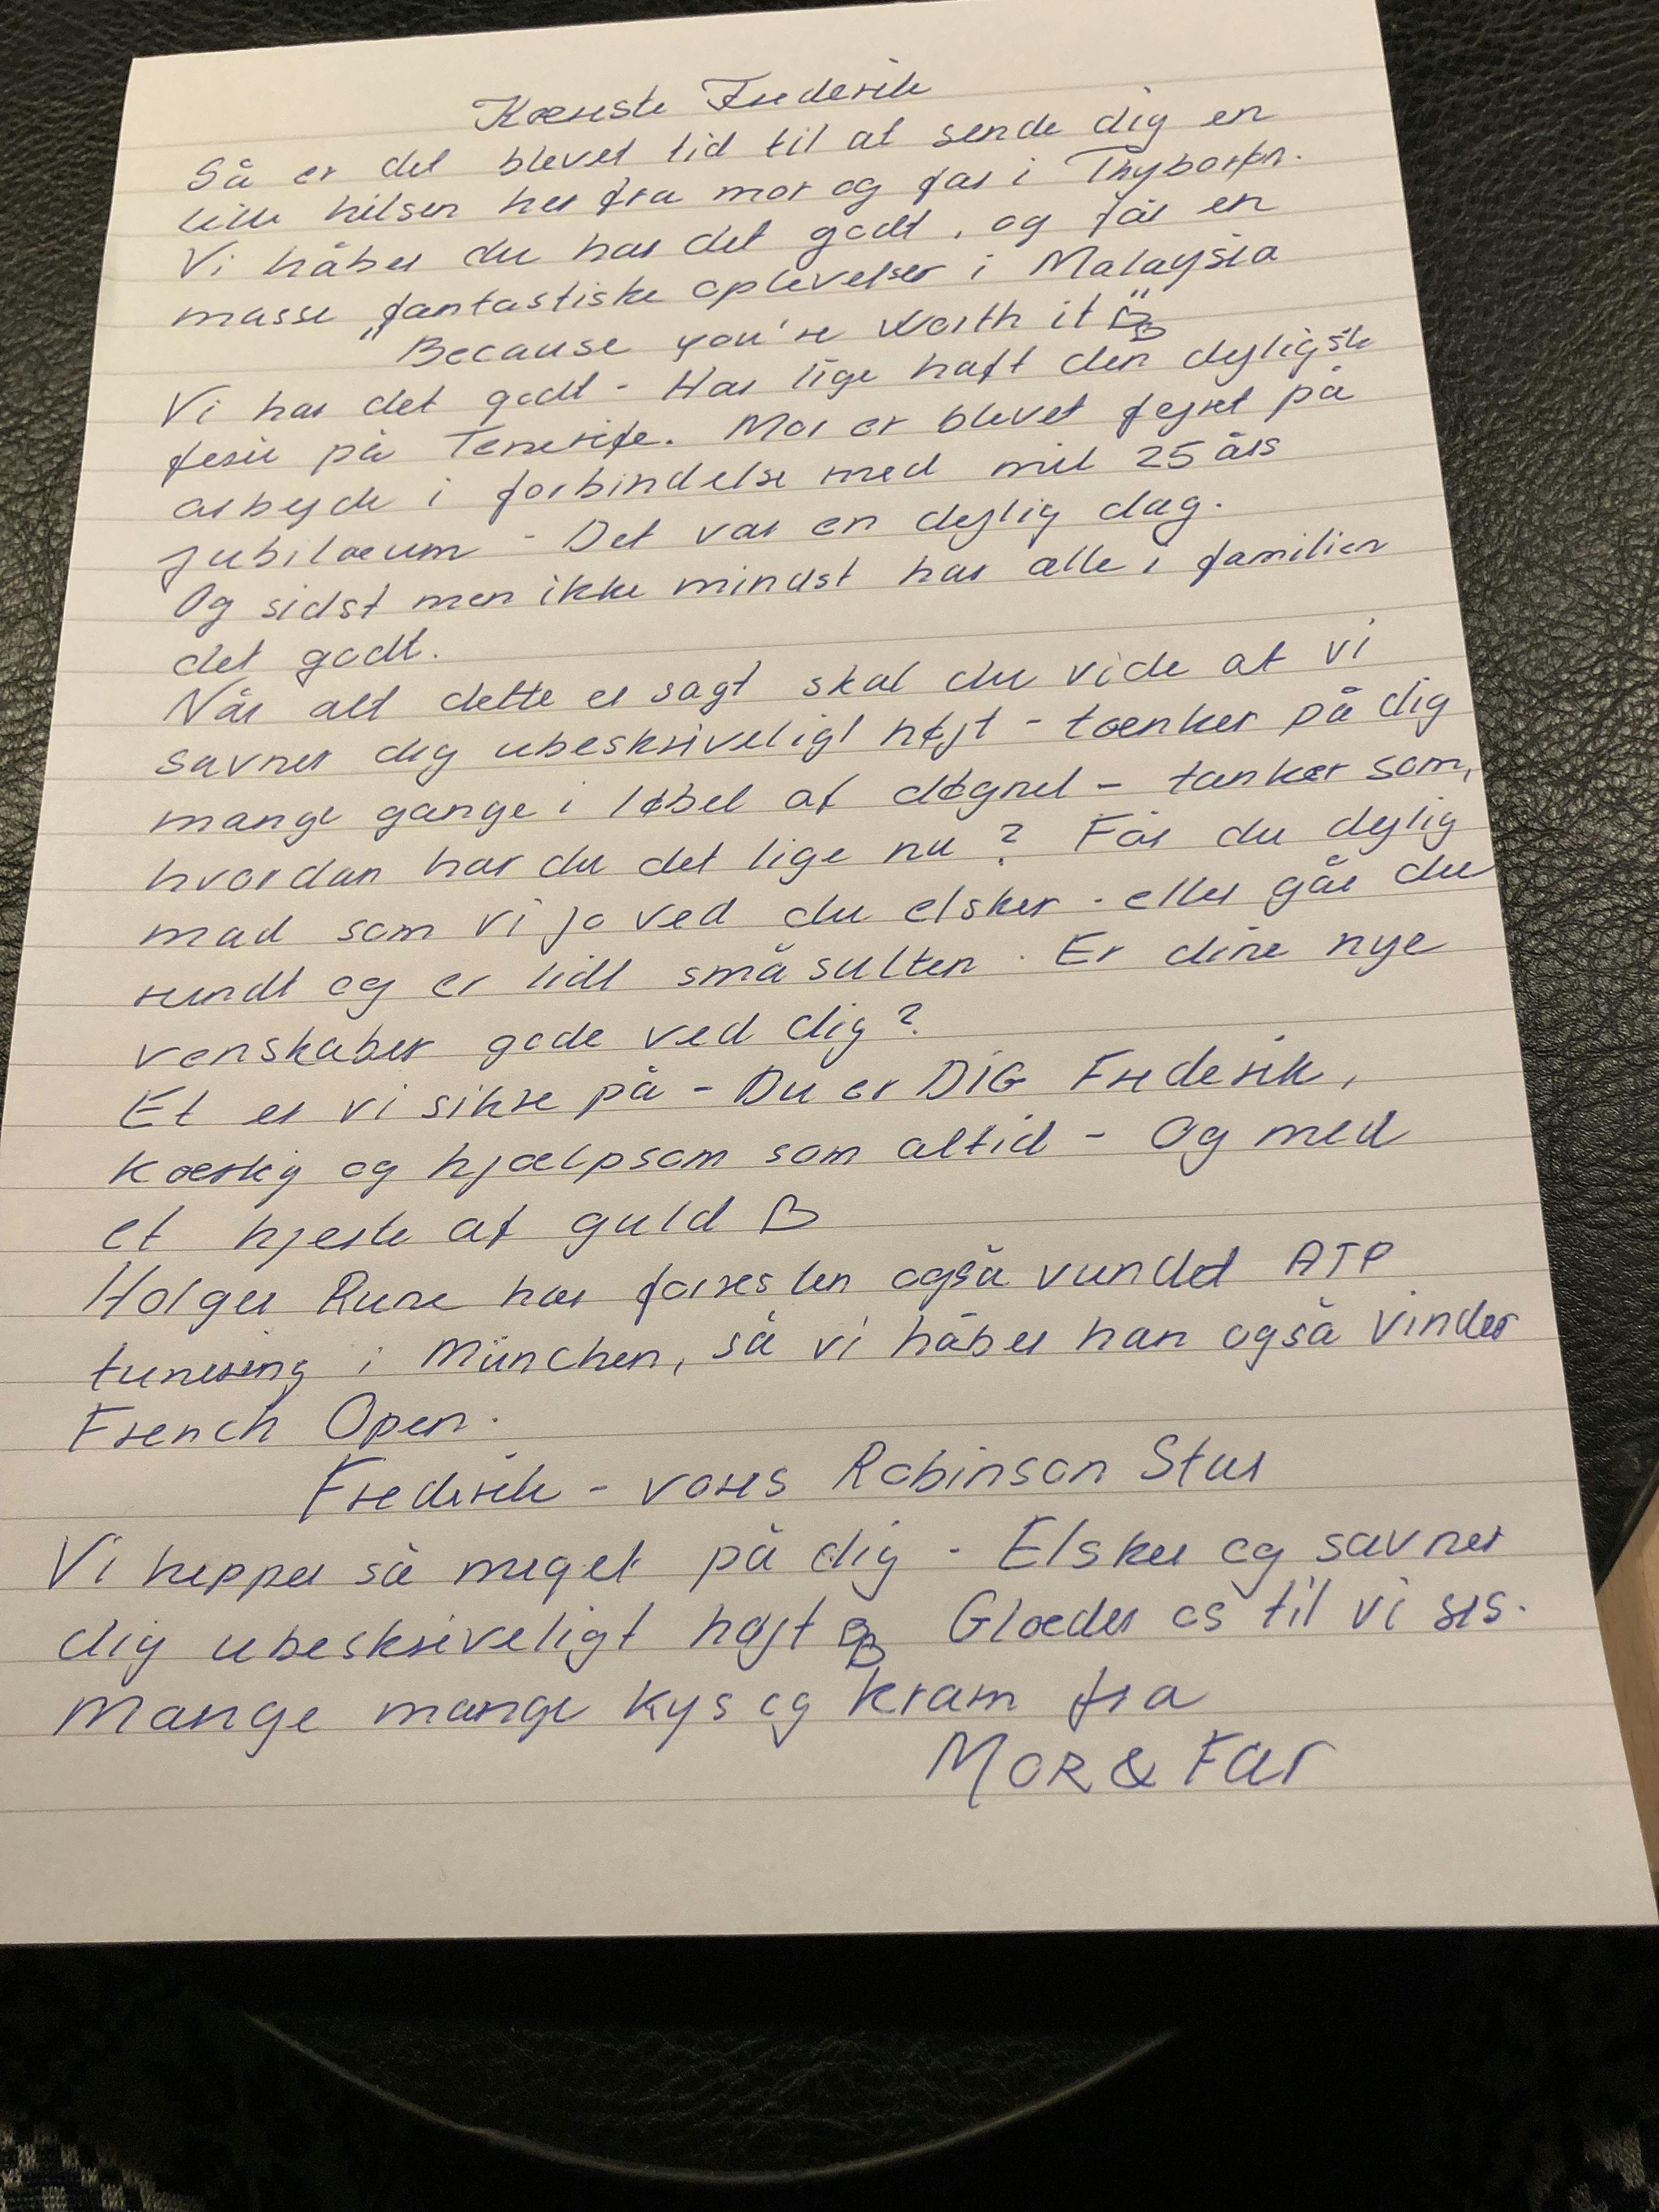 Kæreste Frederik
Så er det blevet tid til at sende dig en
lille hilsen her fra mor og far i Thyborøn.
Vi håber du har det godt, og får en
masse fantastiske oplevelser i Malaysia
"Because you're worth it" ♡♡
Vi har det godt - Har lige haft den dejligste
ferie på Tenerife. Mor er blevet fejret på
arbejde i forbindelse med mit 25 års
jubilæum - Det var en dejlig dag.
Og sidst men ikke mindst har alle i familien
det godt.
Når alt dette er sagt skal du vide at vi
savner dig ubeskriveligt højt - tænker på dig
mange gange i løbet af døgnet - tanker som,
hvordan har du det lige nu? Får du dejlig
mad som vi jo ved du elsker - eller går du
rundt og er lidt småsulten. Er dine nye
venskaber gode ved dig?
Et er vi sikre på - Du er DIG Frederik,
kærlig og hjælpsom som altid - Og med
et hjerte af guld ♡
Holger Rune har forresten også vundet ATP
turnering i München, så vi håber han også vinder
French Open.
Frederik - vores Robinson Star
Vi hepper så meget på dig - Elsker og savner
dig ubeskriveligt højt ♡♡ Glæder os til vi ses.
Mange mange kys og kram fra
MOR & Far